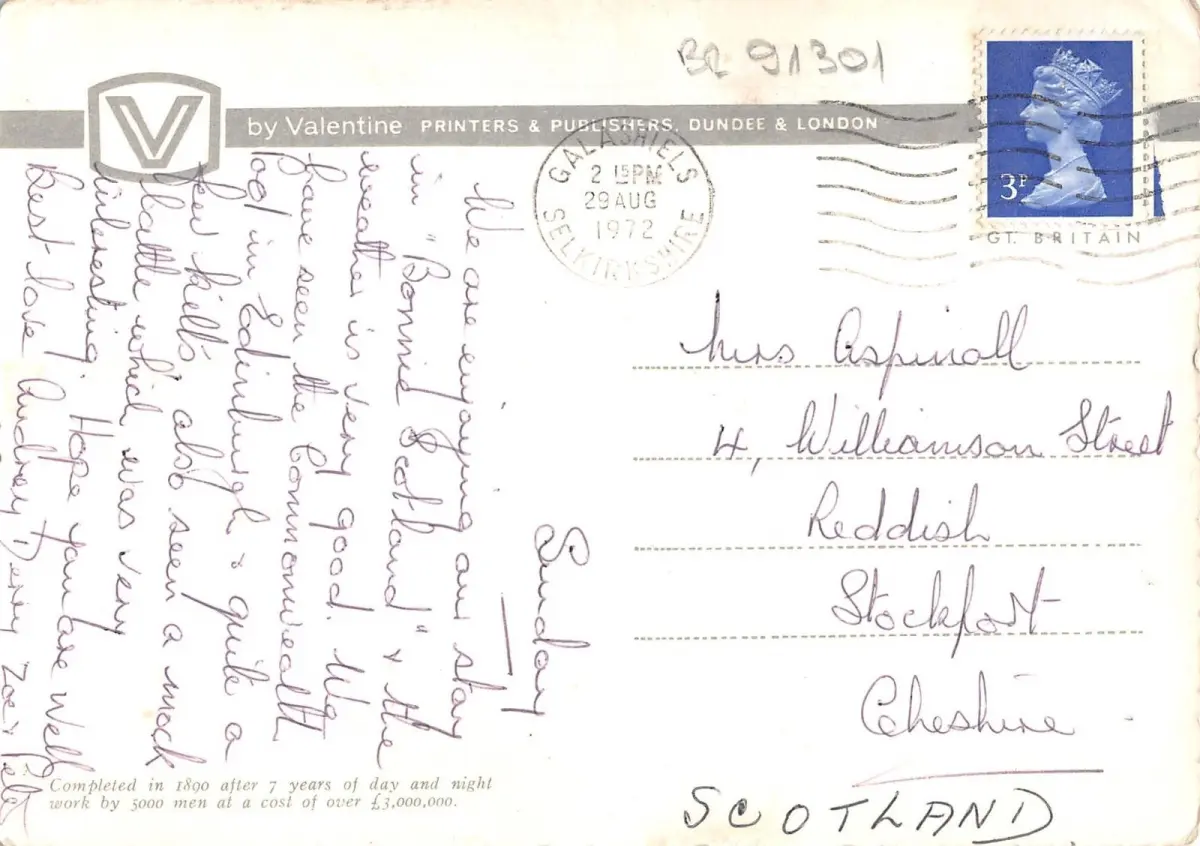 BR 91301
V
by Valentine PRINTERS & PUBLISHERS, DUNDEE & LONDON
GALASHIELS
2 15PM
29 AUG
1972
SELKIRKSHIRE
3P
GT. BRITAIN
Sunday
We are enjoying our stay
in "Bonnie Scotland" & the
weather is very good. We
have seen the Commonwealth
in Edinburgh & quite a
few kilts also seen a mock
battle which was very
interesting. Hope you are well
Best love Audrey, Derry Zoe &
Mrs Aspinall
4, Williamson Street
Reddish
Stockport
Cheshire
SCOTLAND
Completed in 1890 after 7 years of day and night
work by 5000 men at a cost of over £3,000,000.